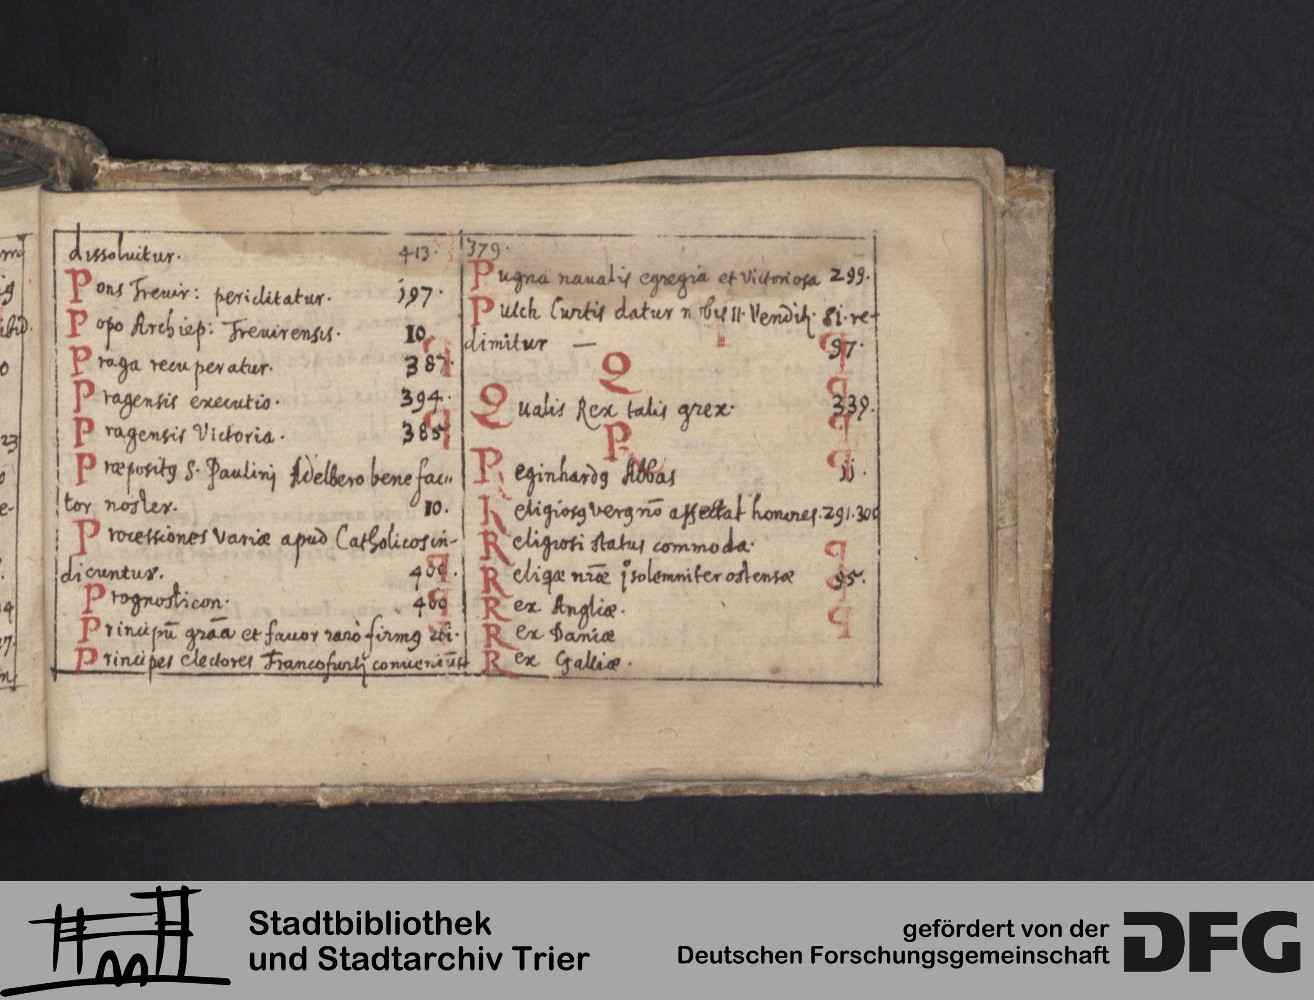 dissoluitur. 413.
Pons Trevir: periclitatur. 197.
Popo Archiep: Trevirensis. 10.
Praga recuperatur. 387.
Pragensis executio. 394.
Pragensis Victoria. 385
Præpositꝰ S. Paulini Adelbero benefac„
tor noster. 10.
Processiones Variæ apud Catholicos in-
dicuntur. 400.
Prognosticon. 400
Principū grāa et favor raro firmꝰ ibi.
Principes electores Francofurti conueniūt
379.
Pugna navalis egregia et Victoriosa 299.
Pulch Curtis datur nobis 11. Vendit. 81. re-
dimitur — 97.
Q
Qualis Rex talis grex. 339.
R
Reginhardꝰ Abbas 11.
Religiosꝰ verꝰ nō affectat honores. 291. 300
Religiosi status commoda.
Reliqæ nræ solemniter ostensæ 95.
Rex Angliæ.
Rex Daniæ
Rex Galliæ.
ibid.
23
Stadtbibliothek
und Stadtarchiv Trier
gefördert von der
Deutschen Forschungsgemeinschaft
DFG